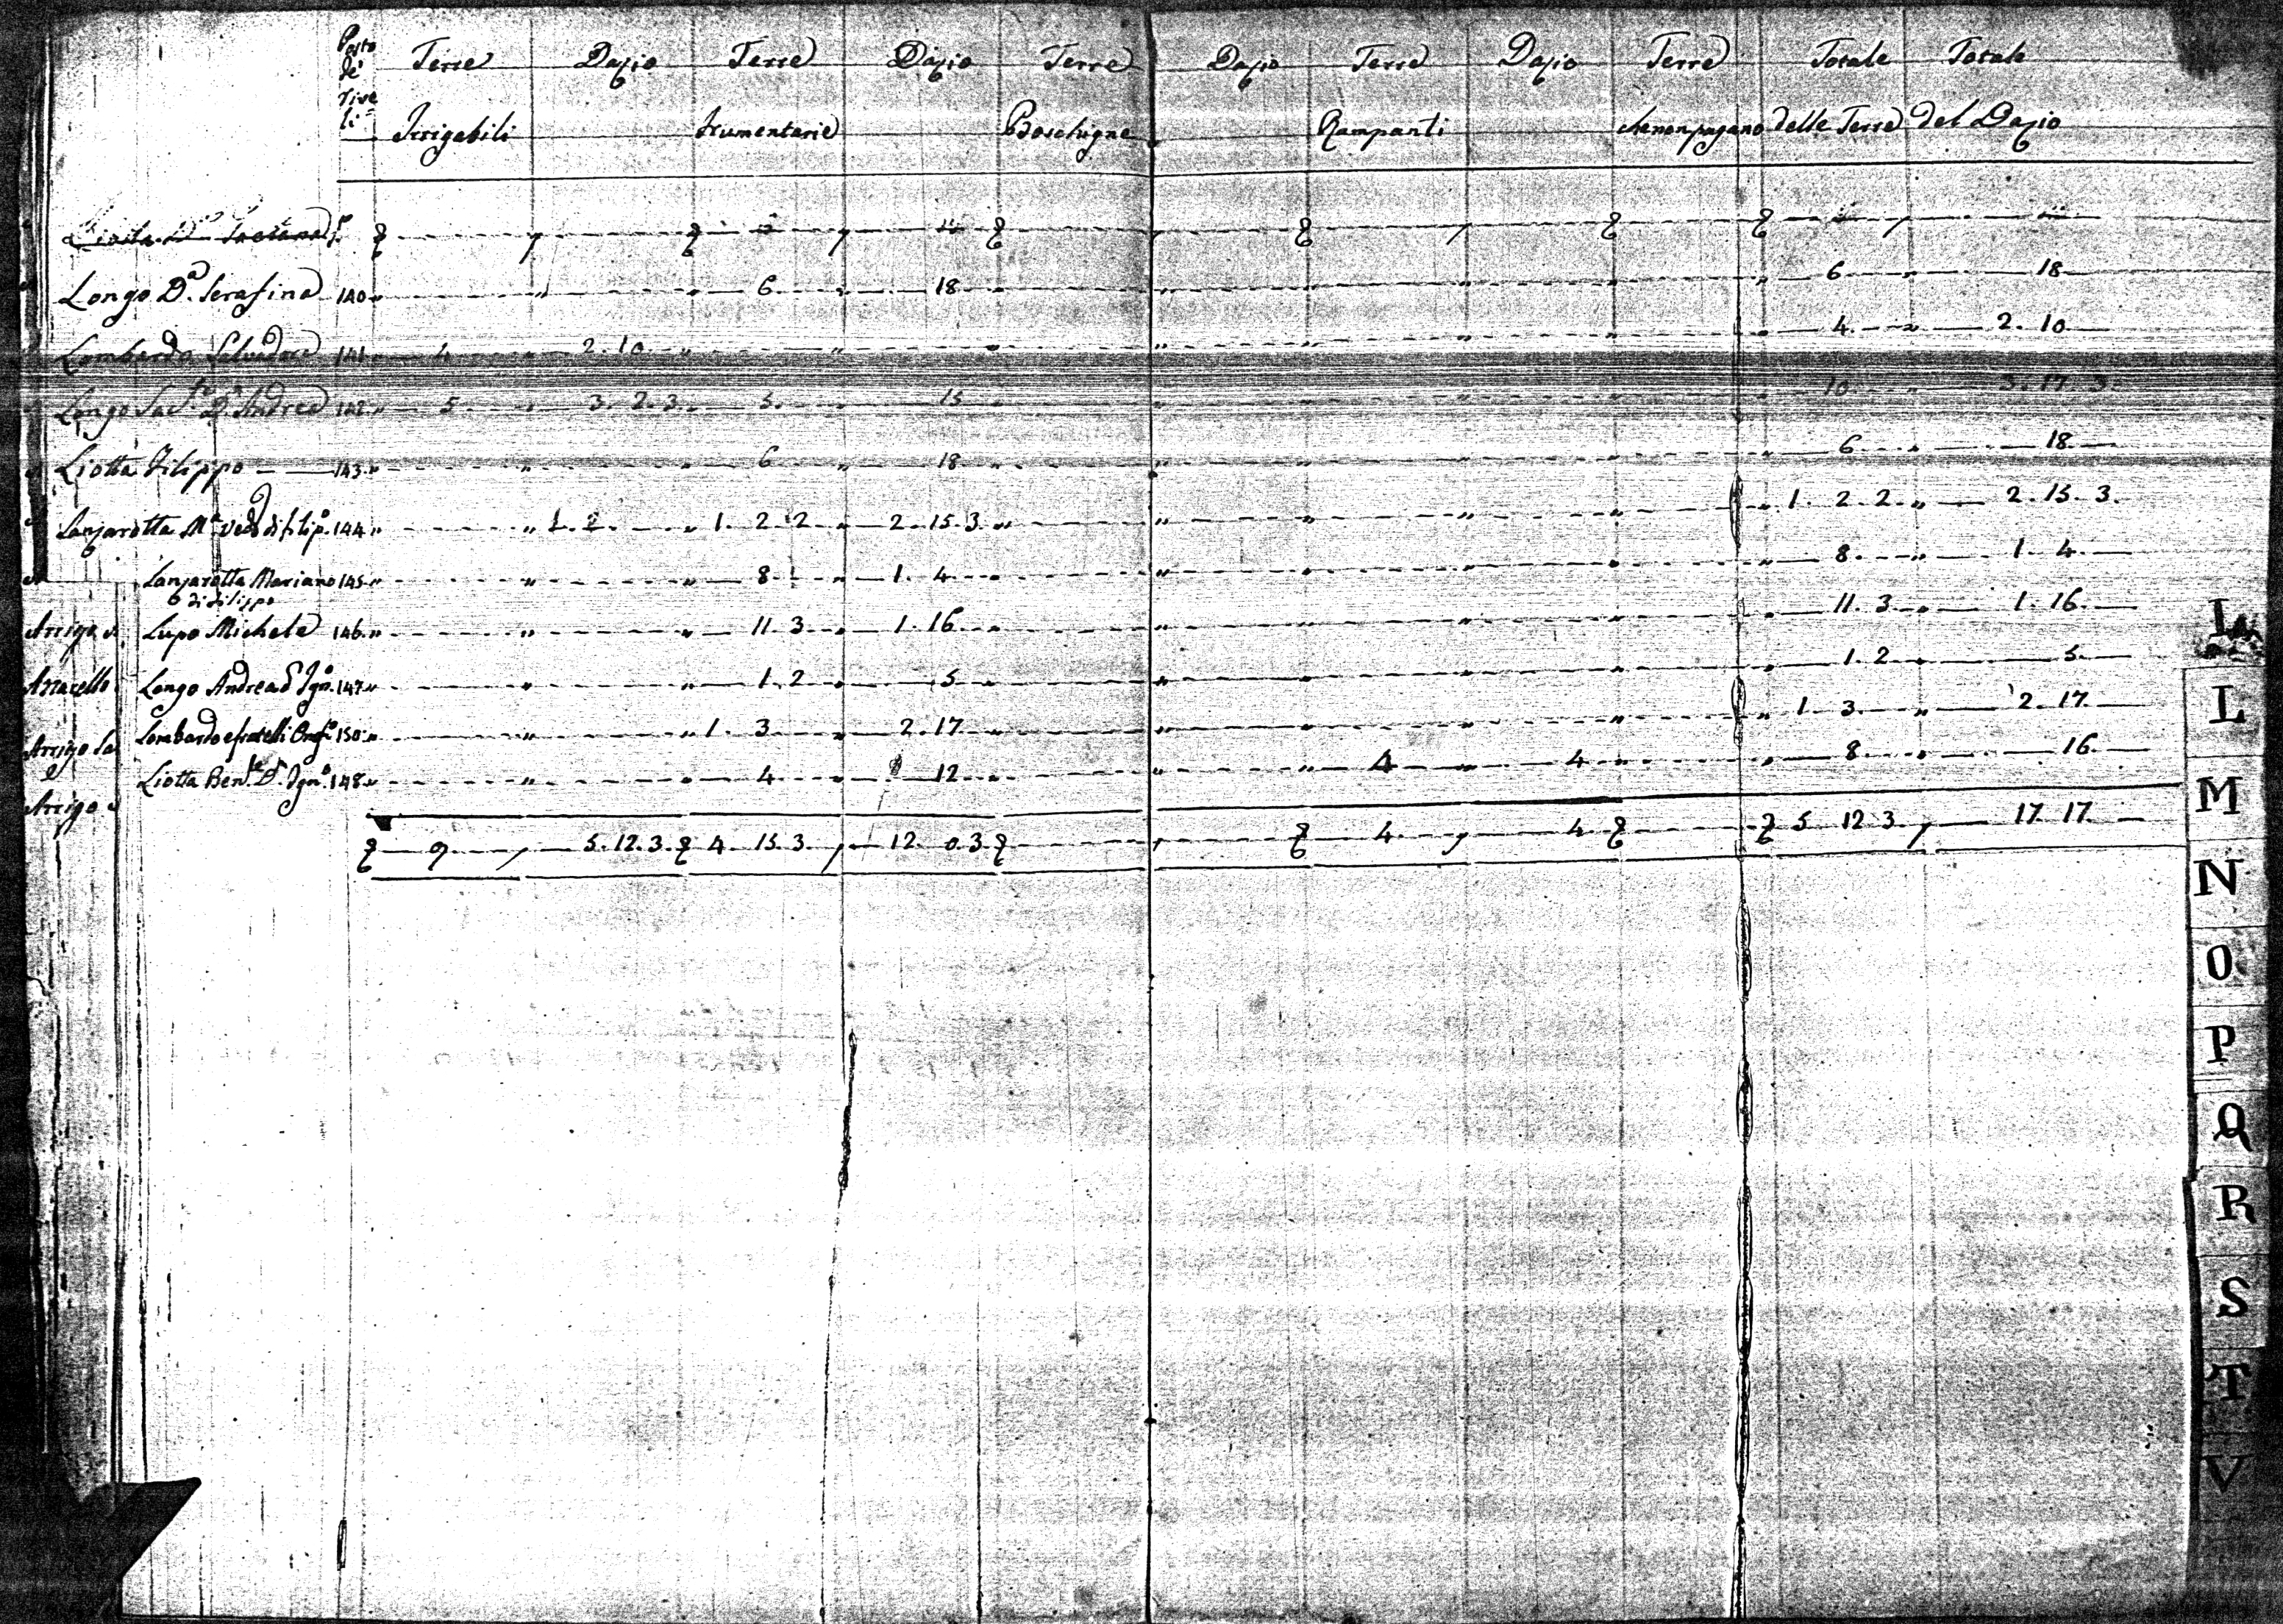 Posto Terre Dazio Terre Dazio Terre Dazio Terre Dazio Terre Totale Totale
de' rive li Irrigabili frumentarie Boschigne Rampanti che non pagano delle Terre del Dazio
Longo D.a Serafina 140 6 18 6 18
Lombardo Salvadore 141 4 2. 10 4 2. 10
Longo Sac.te D.n Andrea 142 5 3. 2. 3 5 15 10 3. 17. 3
Liotta Filippo 143 6 18 6 18
Lanzarotta M.a Ved.a di filip.o 144 1. 2. 2 2. 15. 3 1. 2. 2 2. 15. 3
Lanzarotta Mariano 145 8 1. 4 8 1. 4
di Filippo
Arrigo Lupo Michele 146 11. 3 1. 16 11. 3 1. 16
Longo Andrea d' Ign.o 147 1. 2 5 1. 2 5
Lombardo e fratelli Orof.o 150 1. 3 2. 17 1. 3 2. 17
Arrigo Liotta Ben.le D.n Ign.o 148 4 12 4 4 8 16
Arrigo
9 5. 12. 3 4 15. 3 12 0. 3 4 4 5 12 3 17 17
L
L
M
N
O
P
Q
R
S
T
V